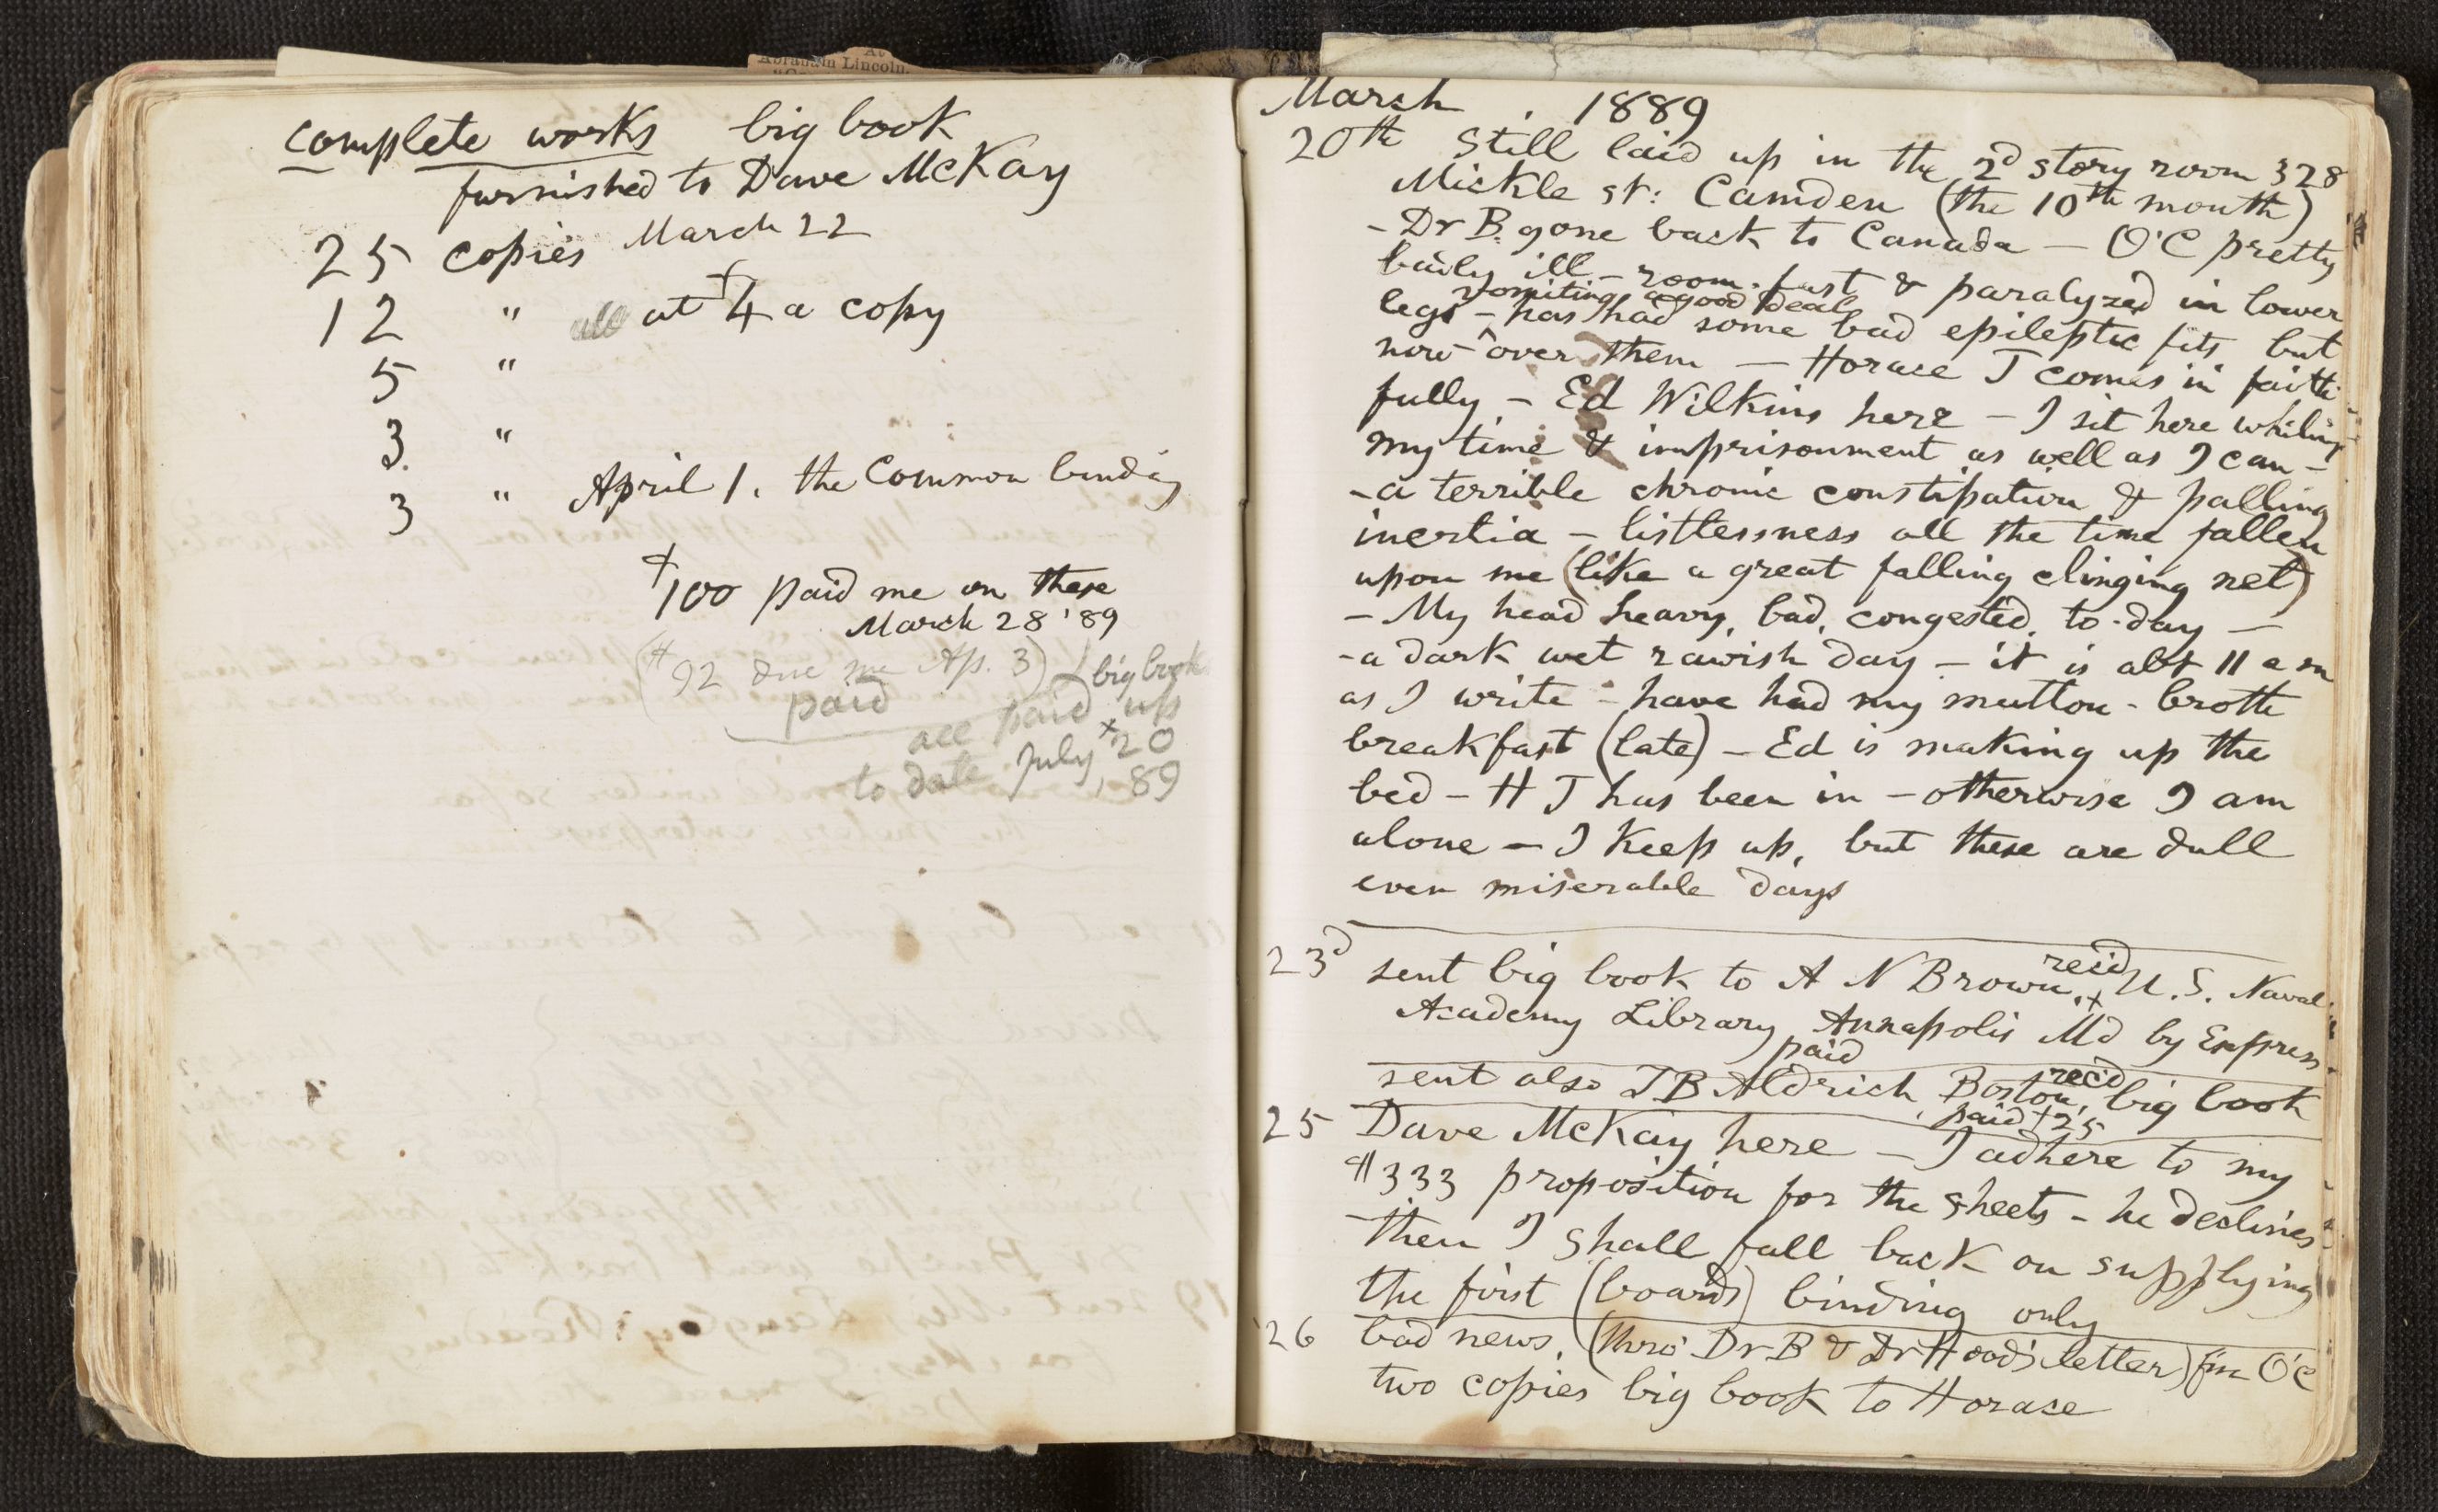 At
Abraham Lincoln.
complete works big book
furnished to Dave McKay
25 copies March 22
12 " all at $4 a copy
5 "
3 "
3 " April 1. the Common binding
$100 paid me on these
March 28 '89
($92 due me Ap. 3) big book
paid
all paid up
to date July 20
, 89
March . 1889
20th Still laid up in the 2d story room 328
Mickle st: Camden (the 10th month)
- Dr B. gone back to Canada - O'C pretty
badly ill - room-fast & paralyzed in lower
vomiting a good deal
legs - has had some bad epileptic fits but
now ^ over them - Horace T comes in faith-
fully - Ed Wilkins here - I sit here whiling
my time & imprisonment as well as I can -
- a terrible chronic constipation & palling
inertia - listlessness all the time fallen
upon me (like a great falling clinging net)
- My head heavy, bad, congested, to-day -
- a dark wet rawish day - it is abt 11 a m
as I write - have had my mutton-broth
breakfast (late) - Ed is making up the
bed - H T has been in - otherwise I am
alone - I keep up, but these are dull
even miserable days
rec'd
23d sent big book to A N Brown, U. S. Naval
Academy Library, Annapolis Md by Express
paid rec'd
sent also T B Aldrich Boston, big book
paid $25
25 Dave McKay here - I adhere to my
$333 proposition for the sheets - he declines
- then I shall fall back on supplying
the first (boards) binding only
26 bad news, (thro' Dr B & Dr Hood's letter) f'm O'C
two copies big book to Horace